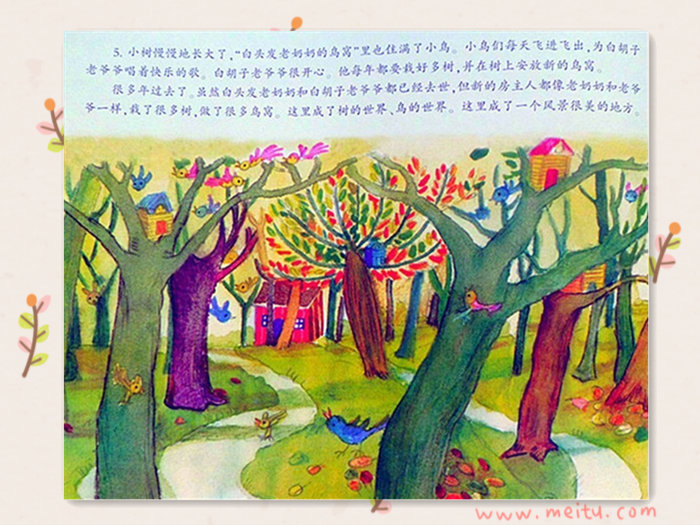 5. 小树慢慢地长大了，“白头发老奶奶的鸟窝”里也住满了小鸟。小鸟们每天飞进飞出，为白胡子
老爷爷唱着快乐的歌。白胡子老爷爷很开心。他每年都要栽好多树，并在树上安放新的鸟窝。
很多年过去了。虽然白头发老奶奶和白胡子老爷爷都已经去世，但新的房主人都像老奶奶和老爷
爷一样，栽了很多树，做了很多鸟窝。这里成了树的世界、鸟的世界。这里成了一个风景很美的地方。
www.meitu.com